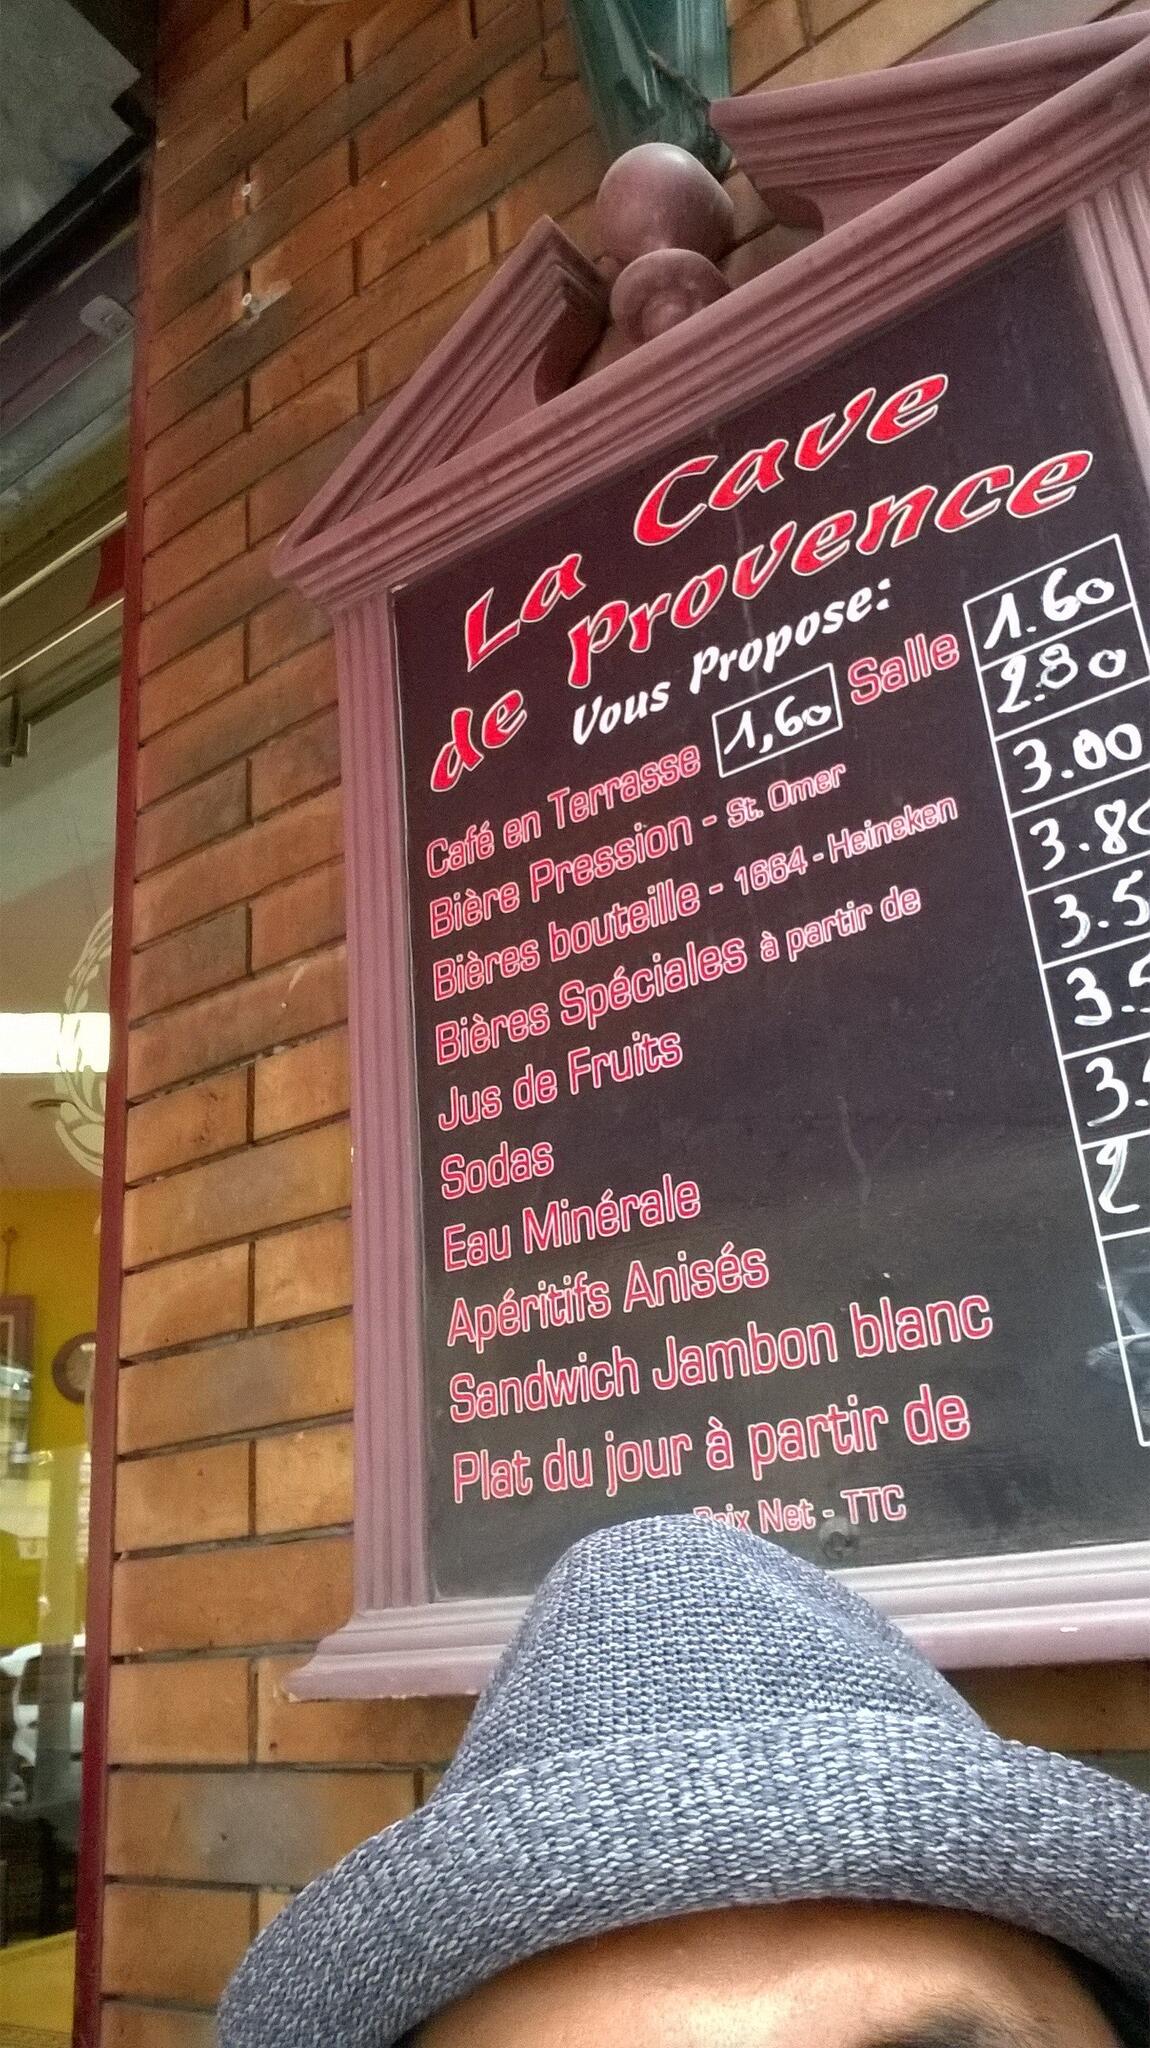 La Cave
de Provence
Vous Propose:
Café en Terrasse 1,60 Salle 1.60
Bière Pression - St. Omer 2.80
Bières bouteille - 1664 - Heineken 3.00
Bières Spéciales à partir de 3.80
Jus de Fruits 3.5
Sodas 3.5
Eau Minérale 3.
Apéritifs Anisés 2
Sandwich Jambon blanc
Plat du jour à partir de
Prix Net - TTC